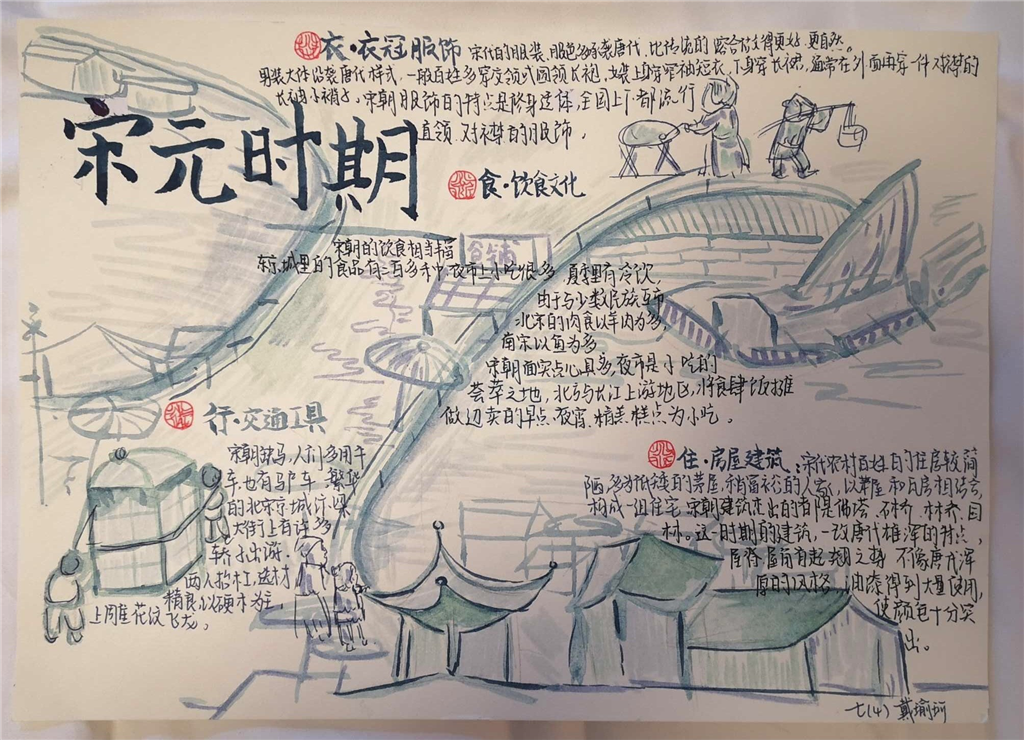 衣·衣冠服饰
宋代的服装,服色多承袭唐代,比传统的 合的更好,更自然。
男装大体沿袭唐代样式,一般百姓多穿交领或圆领长袍,女装上身穿窄袖短衣,下身穿长裙,通常在外面再穿一件对襟的
长袖小褙子,宋朝服饰的特点是修身适体,全国上下都流行
直领、对襟的服饰。
宋元时期
食·饮食文化
宋朝的饮食相当丰富
东京城里的食品有二百多种,夜市上小吃很多,夏季里有冷饮
由于与少数民族互市
北宋的肉食以羊肉为多,
南宋以鱼为多
宋朝面实点心具多,夜市是小吃的
荟萃之地,北方与长江上游地区,将食肆饭摊
做边卖的早点、夜宵、糕点为小吃。
谷铺
行·交通工具
宋朝缺马,人们多用牛
车,也有驴车,繁华
的北宋京城汴梁
大街上有许多
轿子出游,
两人抬杠,选材
精良,以硬木为主,
上雕花纹飞龙。
住·房屋建筑
:宋代农村百姓的住房较简
陋,多为低矮的茅屋,稍富裕的人家,以草屋和瓦房相结合,
构成一组住宅,宋朝建筑杰出的都是佛塔、石桥、木桥、园
林,这一时期的建筑,一改唐代雄浑的特点,
屋脊、屋角有起翘之势,不像唐代浑
厚的风格,油漆得到大量使用,
使颜色十分突
出。
七(4) 戴瑜珂